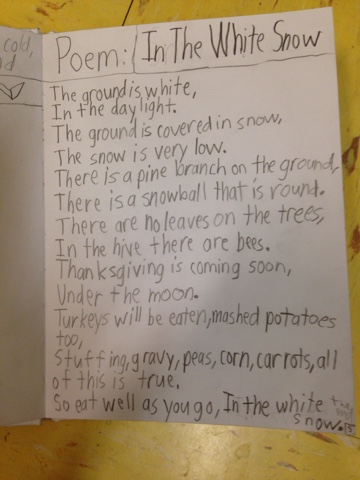 cold,
Poem: In The White Snow
The ground is white,
In the daylight.
The ground is covered in snow,
The snow is very low.
There is a pine branch on the ground,
There is a snowball that is round.
There are no leaves on the trees,
In the hive there are bees.
Thanksgiving is coming soon,
Under the moon.
Turkeys will be eaten, mashed potatoes
too,
Stuffing, gravy, peas, corn, carrots, all
of this is true.
So eat well as you go, In the white
snow.
the
end